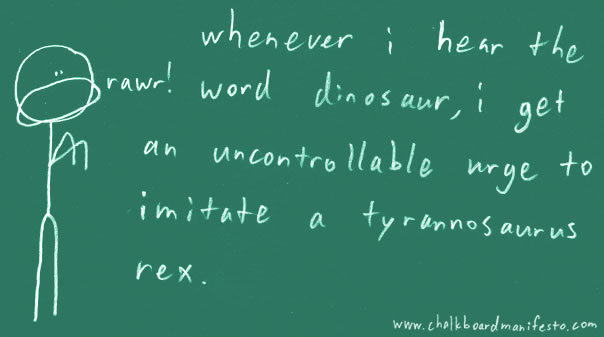 whenever i hear the
rawr! word dinosaur, i get
an uncontrollable urge to
imitate a tyrannosaurus
rex.
www.chalkboardmanifesto.com